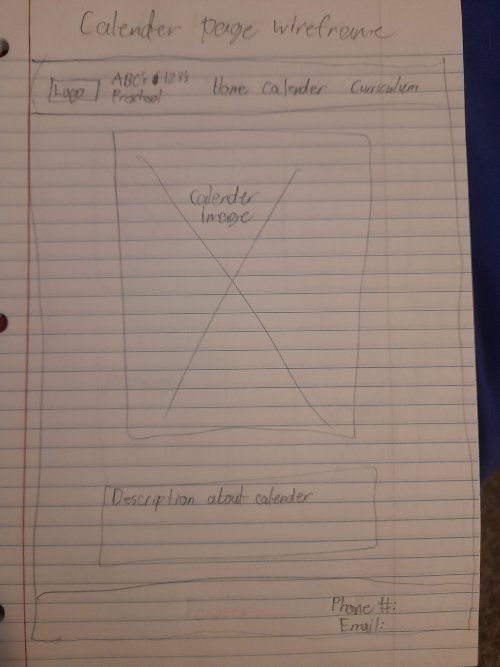 Calender page wireframe
Logo
ABC's & 123's
Preschool
Home Calender Curriculum
Calender
image
Description about calender
Phone #:
Email: